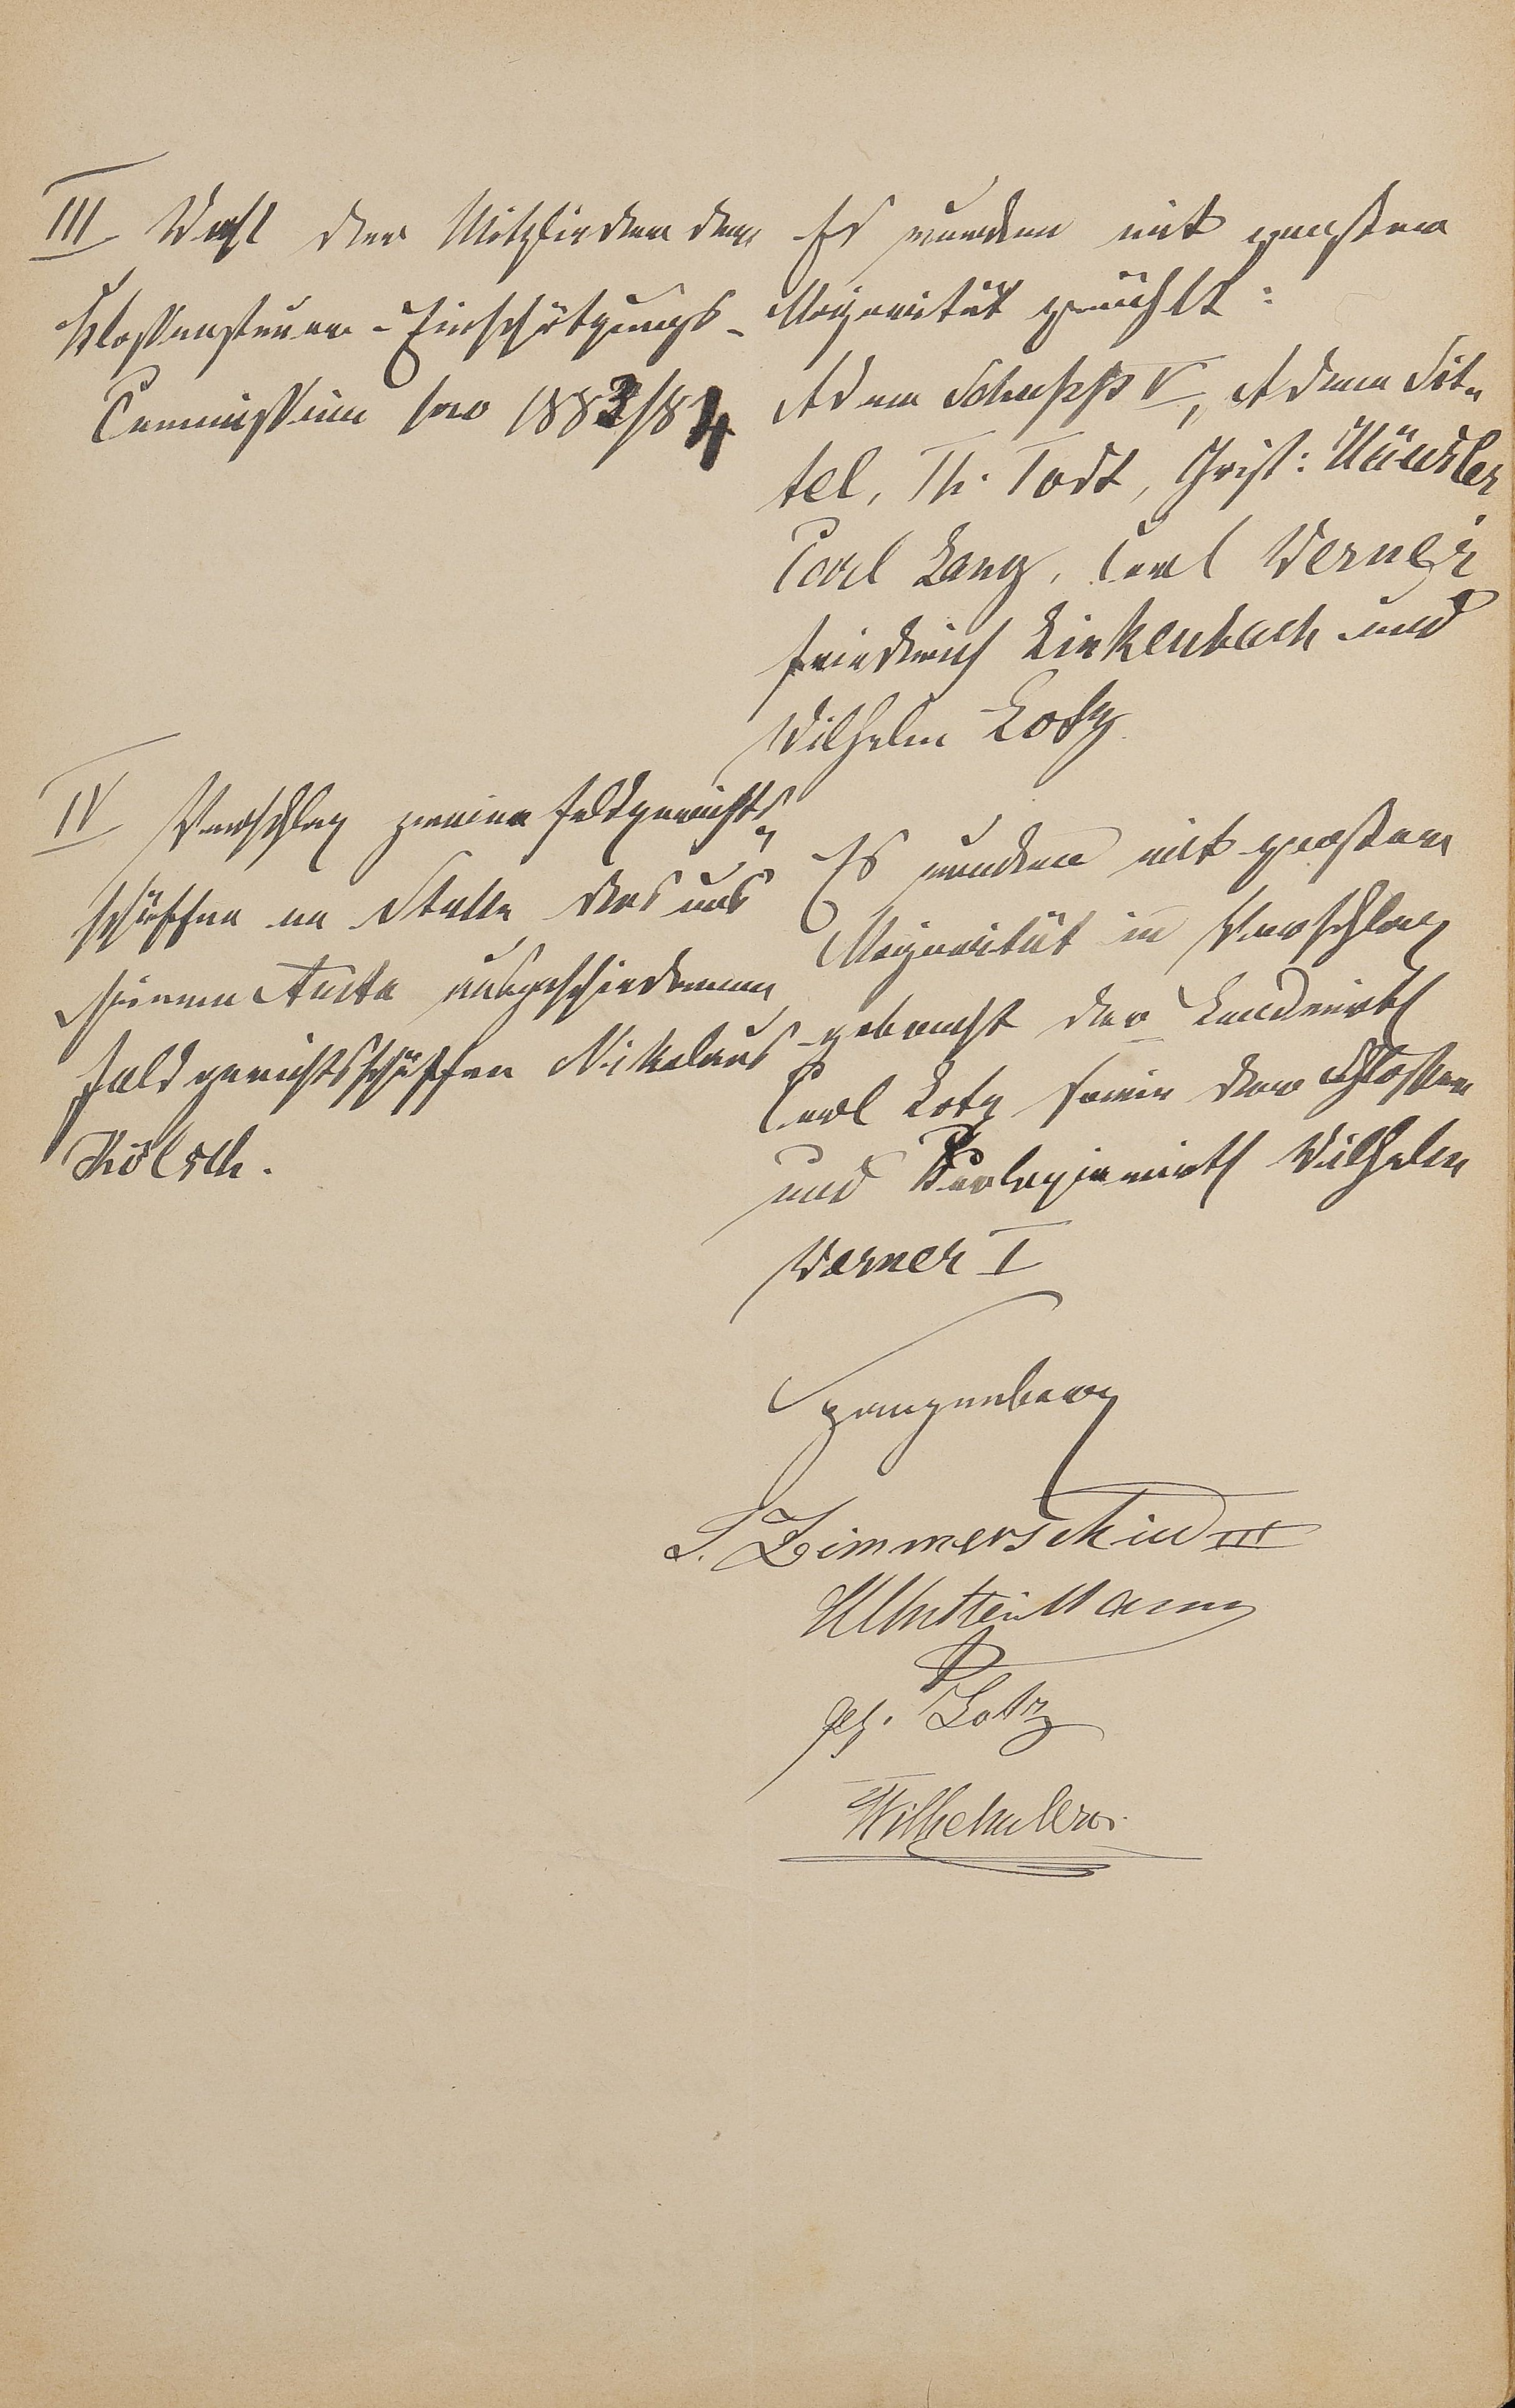 III Wahl der Mitglieder der
Klassensteuer-Einschätzungs-
Commission pro 1883/84
Es wurden mit großer
Majorität gewählt:
Adam Schupp V, Adam Sit-
tel, Th. Todt, Christ: Künstler
Carl Lang, Carl Werner
Friedrich Linkenbach und
Wilhelm Lotz.
IV Vorschlag zweier Feldgerichts-
schöffen an Stelle des aus
seinem Amte ausgeschiedenen
Feldgerichtsschöffen Nikolaus
Kölsch.
Es wurden mit großer
Majorität in Vorschlag
gebracht der Landwirth
Carl Lotz sowie der Schlosser
und Wilhelm
Werner I
Spangenberg
L. Zimmerschied III
gez. Lotz